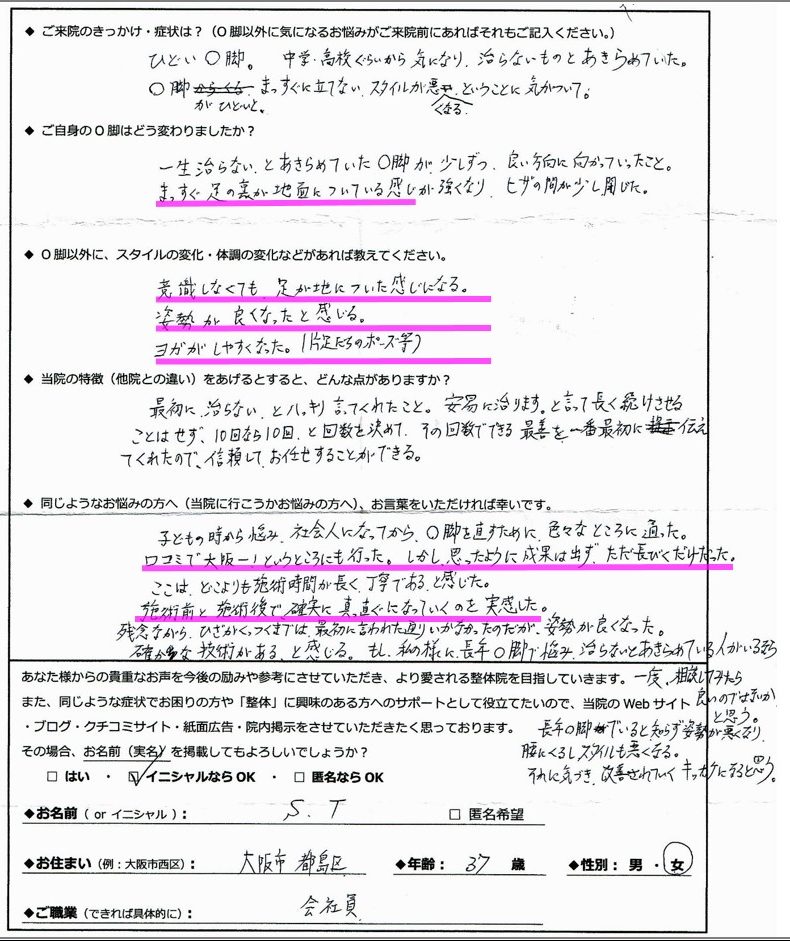 ◆ ご来院のきっかけ・症状は？（O脚以外に気になるお悩みがご来院前にあればそれもご記入ください。）
ひどい O脚。 中学・高校ぐらいから 気になり、治らないものと あきらめていた。
O脚がひどいと、まっすぐに立てない、スタイルが悪くなる ということに 気がついて。
◆ ご自身のO脚はどう変わりましたか？
一生治らない、とあきらめていた O脚が、少しずつ、良い方向に 向かっていったこと。
まっすぐ 足の裏が 地面についている感じが 強くなり、ヒザの間が 少し閉じた。
◆ O脚以外に、スタイルの変化・体調の変化などがあれば教えてください。
意識しなくても、足が地についた感じになる。
姿勢が 良くなったと 感じる。
ヨガが しやすくなった。（片足立ちのポーズ等）
◆ 当院の特徴（他院との違い）をあげるとすると、どんな点がありますか？
最初に 治らない、と ハッキリ 言ってくれたこと。 安易に治ります。と言って 長く 続けさせる
ことはせず、10回なら10回、と 回数を決めて、その回数でできる 最善を 一番最初に 伝え
てくれたので、信頼して、お任せすることができる。
◆ 同じようなお悩みの方へ（当院に行こうかお悩みの方へ）、お言葉をいただければ幸いです。
子どもの時から 悩み、社会人になってから、O脚を直すために、色々な ところに 通った。
口コミで 大阪一！というところにも 行った。しかし、思ったように 成果は出ず、ただ長びくだけだった。
ここは、どこよりも 施術時間が 長く、丁寧である、と感じた。
施術前と 施術後で、確実に 真っ直ぐに なっていくのを 実感した。
残念ながら、ひざがくっつくまでは、最初に言われた通り いかなかったのだが、姿勢が 良くなった。
確かな 技術がある、と感じる。もし、私の様に、長年O脚で悩み、治らないと あきらめている人がいるなら
一度、相談してみたら
良いのではないか
と思う。
長年O脚でいると 知らず 姿勢が悪くなり、
腰にくるし スタイルも 悪くなる。
それに気づき、改善されていく キッカケになると思う。
あなた様からの貴重なお声を今後の励みや参考にさせていただき、より愛される整体院を目指していきます。
また、同じような症状でお困りの方や「整体」に興味のある方へのサポートとして役立てたいので、当院の Web サイト
・ブログ・クチコミサイト・紙面広告・院内掲示をさせていただきたく思っております。
その場合、お名前（実名）を掲載してもよろしいでしょうか？
□ はい ・ ☑ イニシャルなら OK ・ □ 匿名なら OK
◆お名前（ or イニシャル ）： S. T □ 匿名希望
◆お住まい（例：大阪市西区）： 大阪市 都島区 ◆年齢： 37 歳 ◆性別： 男 ・ 女
◆ご職業（できれば具体的に）： 会社員